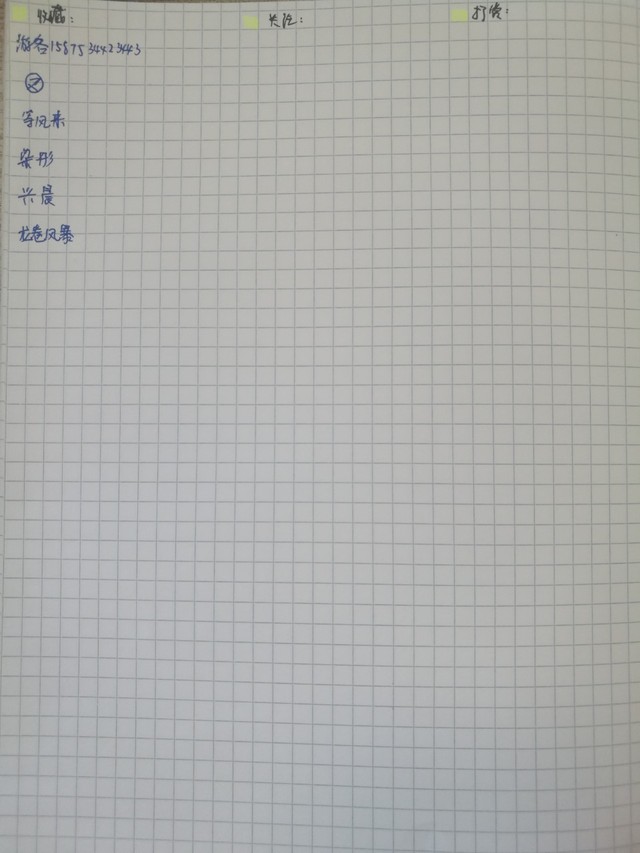 收藏： 关注： 打赏：
游客1587534423443
等风来
染彤
兴晨
龙卷风暴